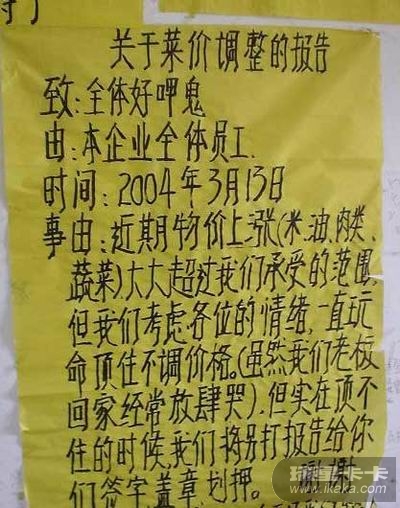 关于菜价调整的报告
致:全体好呷鬼
由:本企业全体员工.
时间:2004年3月13日
事由:近期物价上涨(米、油、肉类、
蔬菜)大大超过我们承受的范围,
但我们考虑各位的情绪,一直玩
命顶住不调价格。(虽然我们老板
回家经常放肆哭),但实在顶不
住的时候,我们将另打报告给你
们签字盖章划押。
玩童卡卡
www.ikaka.com